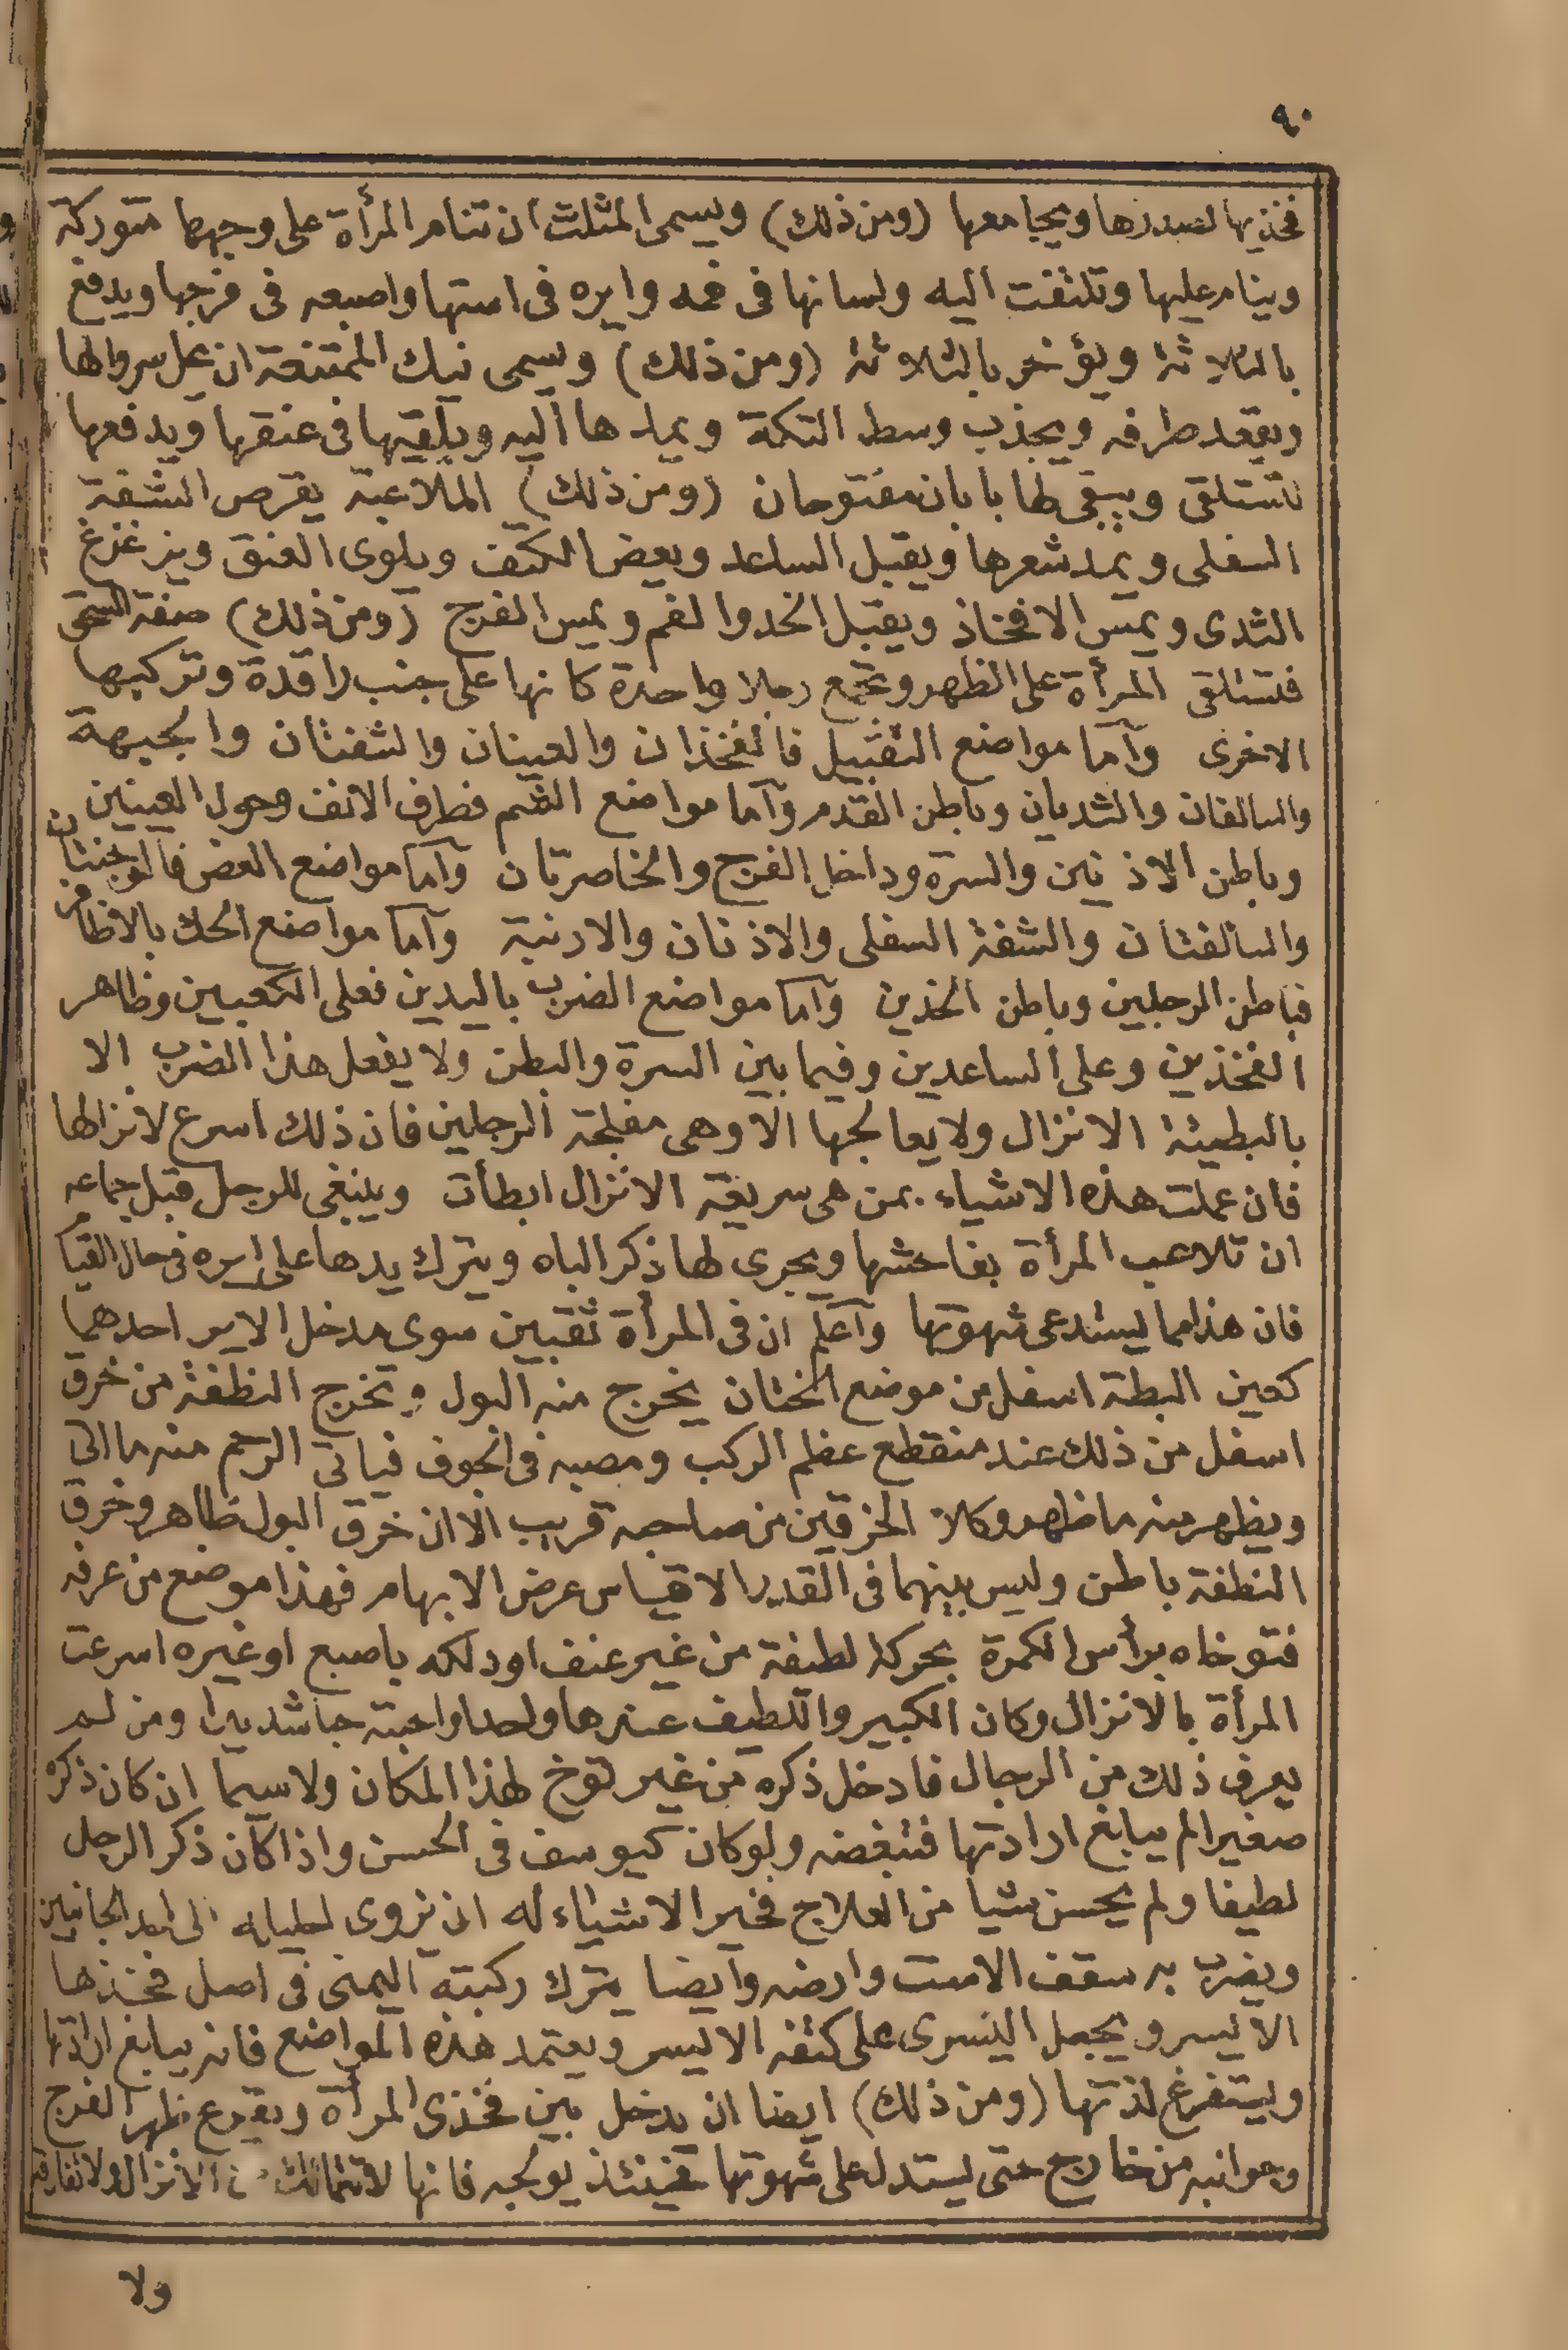 ٩٠
فخذيها لصدرها ويجامعها (ومن ذلك) ويسمى المثلث ان تنام المرأة على وجهها متوركة
وينام عليها وتلتفت اليه ولسانها فى فمه وايره فى استها واصبعه فى فرجها ويدفع
بالثلاثة ويؤخر بالثلاثة (ومن ذلك) ويسمى نيك الممتنعة ان يحل سروالها
ويعقد طرفه ويجذب وسط التكة ويمدها اليه ويلقيها فى عنقها ويدفعها
لتستلقى ويبقى لها بابان مفتوحان (ومن ذلك) الملاعبة يقرص الشفة
السفلى ويمد شعرها ويقبل الساعد ويعض الكتف ويلوى العنق ويزغزغ
الثدى ويمس الافخاذ ويقبل الخد والفم ويمس الفرج (ومن ذلك) صفة
فتستلقى المرأة على الظهر وتجمع رجلا واحدة كانها على جنب راقدة وتركبها
الاخرى وآما مواضع التقبيل فالفخذان والعينان والشفتان والجبهة
والسالفان والثديان وباطن القدم وآما مواضع الشم فطرف الانف وحول العينين
وباطن الاذنين والسرة وداخل الفرج والخاصرتان وآما مواضع العض فالوجنتان
والسالفتان والشفة السفلى والاذنان والارنبة وآما مواضع الحك بالاظافر
فباطن الرجلين وباطن الخذين وآما مواضع الضرب باليدين فعلى الكعبين وظاهر
الفخذين وعلى الساعدين وفيما بين السرة والبطن ولا يفعل هذا الضرب الا
بالبطيئة الانزال ولا يعالجها الا وهى مفلجة الرجلين فان ذلك اسرع لانزالها
فان عملت هذه الاشياء بمن هى سريعة الانزال ابطأت وينبغى للرجل قبل جماعه
ان تلاعب المرأة بفاحشها ويجرى لها ذكر الباه ويترك يدها على ايره فى حال القيا
فان هذا مما يستدعى شهوتها وآعلم ان فى المرأة ثقبين سوى مدخل الاير احدهما
كعين البطة اسفل من موضع الختان يخرج منه البول وتخرج النطفة من خرق
اسفل من ذلك عند منقطع عظم الركب ومصبه فى الجوف فياتى الرحم منه ما اتى
ويظهر منه ما ظهر وكلا الخرقين من صاحبه قريب الا ان خرق البول ظاهر وخرق
النطفة باطن وليس بينهما فى القدر الا قياس عرض الابهام فهذا موضع من عرفه
فتوخاه برأس الكمرة بحركة لطيفة من غير عنف او دلكه باصبع او غيره اسرعت
المرأة بالانزال وكان الكبير واللطيف عندها واحدا واحبته حبا شديدا ومن لم
يعرف ذلك من الرجال فادخل ذكره من غير توخ لهذا المكان ولا سيما ان كان ذكره
صغيرا لم يبالغ ارادتها فتبغضه ولو كان كيوسف فى الحسن واذا كان ذكر الرجل
لطيفا ولم يحسن شيا من العلاج فخير الاشياء له ان يزوى الى احد الجانبين
ويضرب به سقف الاست وارضه وآيضا يترك ركبته اليمنى فى اصل فخذها
الايسر ويجعل اليسرى على كتفه الايسر ويعتمد هذه المواضع فانه يبالغ ارادتها
ويستفرغ لذتها (ومن ذلك) ايضا ان يدخل بين فخذى المرأة ويقرع ظهر الفرج
وجوانبه من خارج حتى يستدل على شهوتها فحينئذ يولجه فانها لا تتمالك الانزال ولا تفارقه
ولا